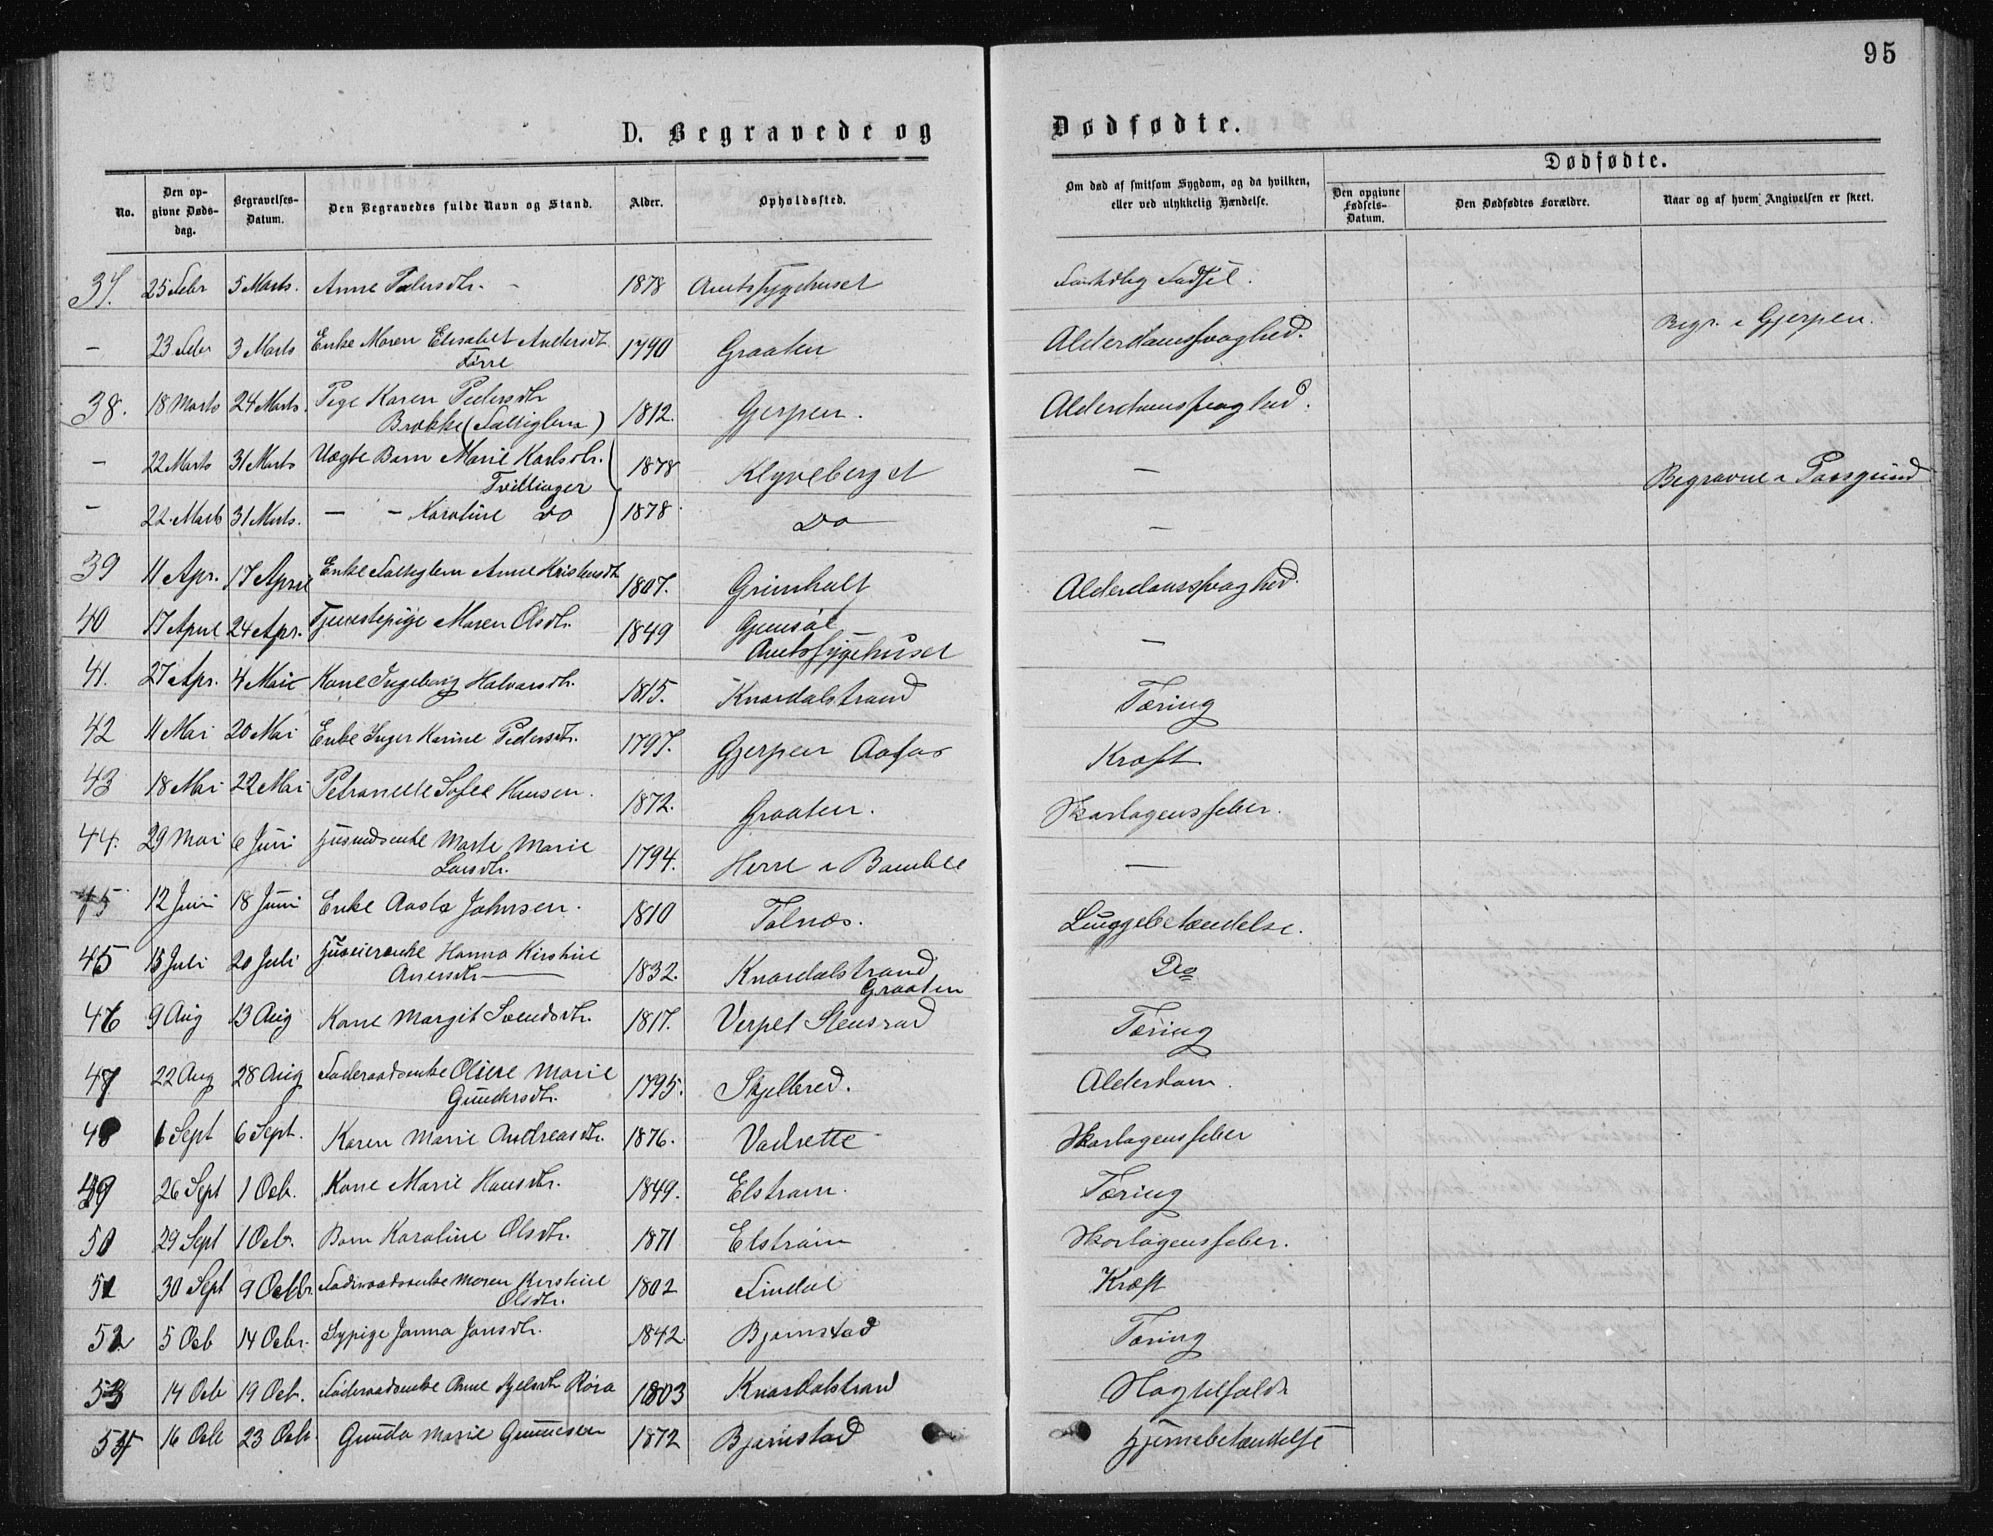 95
D. Begravede og
Dødfødte.
No.
Den opgivne Dødsdag.
Begravelses-Datum.
Den Begravedes fulde Navn og Stand.
Alder.
Opholdssted.
Om død af smitsom Sygdom, og da hvilken, eller ved ulykkelig Hændelse.
Dødfødte.
Den opgivne Fødsels-Datum.
Den Dødfødtes Forældre.
Naar og af hvem Angivelsen er skeet.
37. 25 Febr 5 Marts. Anne Pedersdtr. - 1878 Amtssygehuset
- 23 Febr 3 Marts Enke Maren Elisabet Andersdt 1790 Graaten Alderdomssvaghed. Begr. i Gjerpen.
38. 18 Marts 24 Marts. Pige Karen Pedersdtr 1812. Gjerpen. Alderdomssvaghed.
- 22 Marts 31 Marts Uægte Barn Marie Karlsdtr. 1878 Klyveberget - Begravne i Porsgrund
Tvillinger
- 22 Marts 31 Marts. - - Karoline Do 1878 Do -
39 11 Apr. 17 April Enke Anne 1807. Grinholt Alderdomssvaghed.
40 17 April 24 Apr. Tjenestepige Maren Olsdtr. 1849 Gjemsøe -
Amtssygehuset
41. 27 Apr. 4 Mai Kone Ingeborg Halvorsdtr. 1815. Knardalstrand Tæring
42 11 Mai 20 Mai Enke Inger Karine Pedersdtr. 1797. Gjerpen Aafos Kræft
43 18 Mai 22 Mai Petronelle Sofie Hansen. 1872. Graaten. Skarlagensfeber.
44. 29 Mai 6 Juni Husmdsenke Marte Marie 1794. Herre i Bamble -
Larsdtr.
45 12 Juni 18 Juni Enke Aasta Johnsen. 1810 Tolnæs. Lunggebetændelse.
45 15 Juli 20 Juli Huseierenke Hanna Kirstine 1832. Knardalstrand Do
Graaten
46 9 Aug 13 Aug Kone Margit Svendsdtr. 1817. Verpet Stensrød Tæring
47 22 Aug 28 Aug Føderaadsenke Oliere Marie 1795. Skjelbred. Alderdom.
Gundersdtr.
48 1 Sept 6 Sept. Karen Marie Andreasdtr. 1876. Vadrette Skarlagensfeber
49 26 Sept 1 Octr. Kone Marie Hansdtr. 1849. Elstrøm. Tæring
50 29 Sept 1 Octr. Barn Karoline Olsdtr. 1871 Elstrøm Skarlagensfeber.
51 30 Sept 9 Octbr. Føderaadsenke Maren Kirstine 1802 Findal Kræft
Olsdtr.
52 5 Octb 14 Octbr. Sypige Janna Jonsdtr. 1842. Bjørnstad Tæring
53 14 Octb 19 Octb. Føderaadsenke Anne Kjelsdtr Røra 1803 Knardalstrand Slagtilfælde
54 16 Octb 23 Octb. Gunda Marie 1872 Bjørnstad Hjernebetændelse